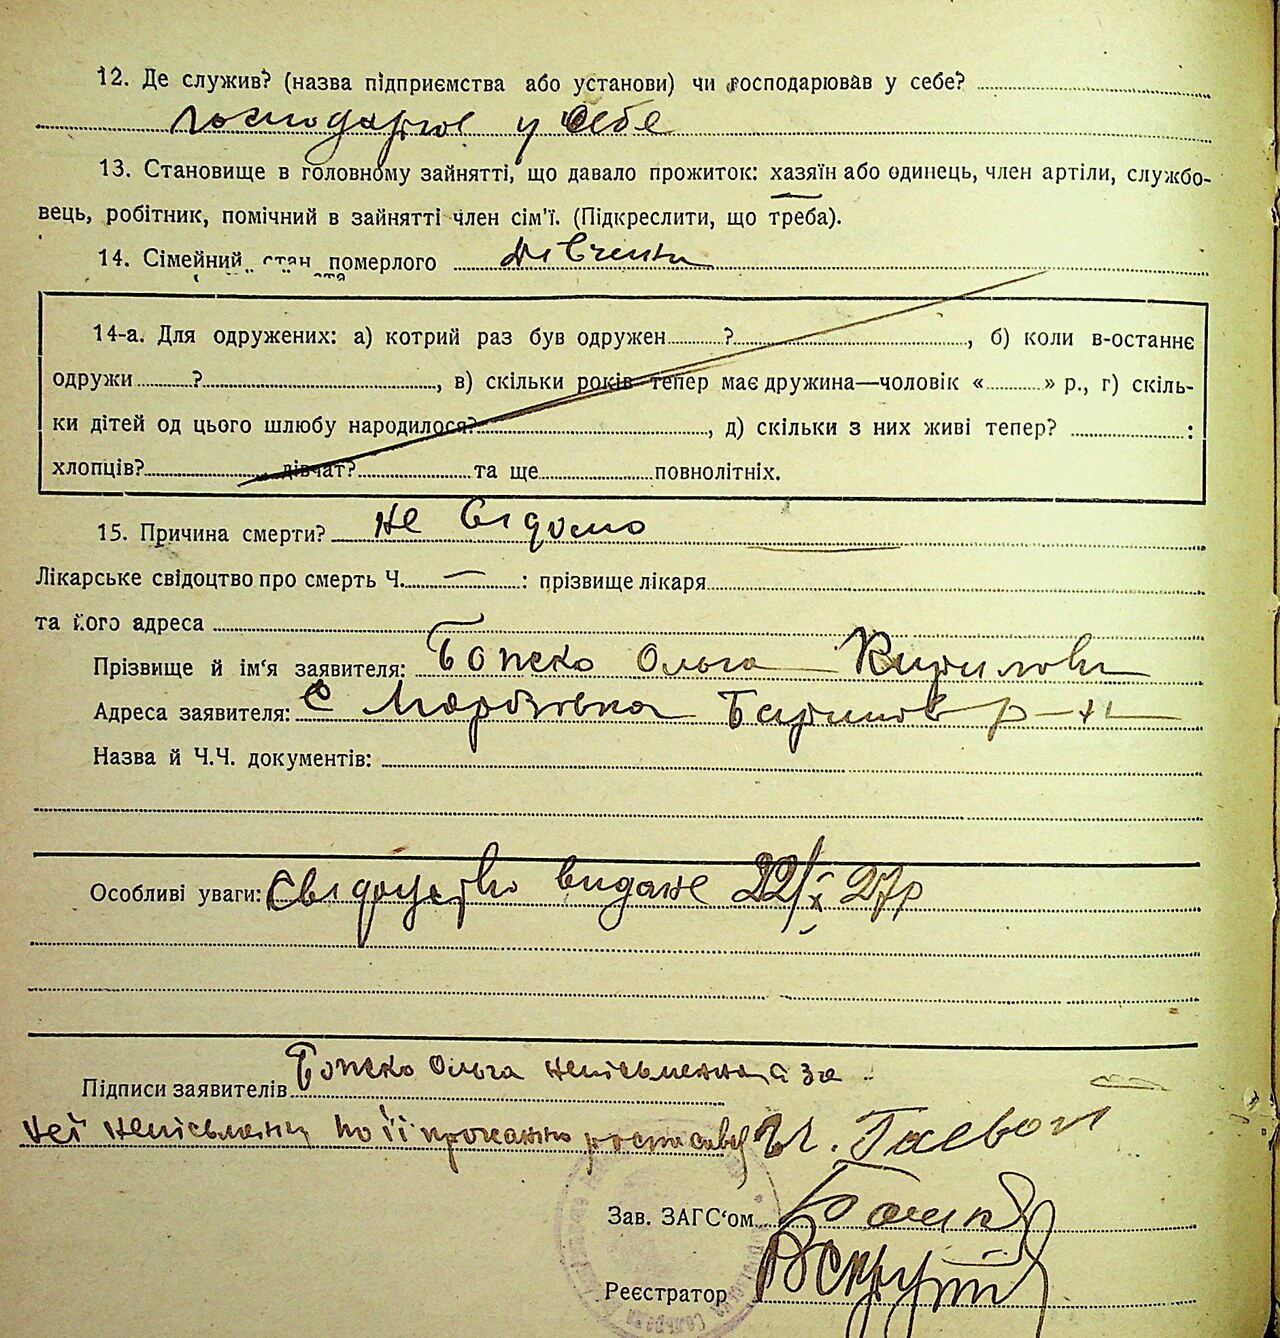 12. Де служив? (назва підприємства або установи) чи господарював у себе?
господарює у себе
13. Становище в головному зайнятті, що давало прожиток: хазяїн або одинець, член артіли, службо-
вець, робітник, помічний в зайнятті член сім'ї. (Підкреслити, що треба).
14. Сімейний стан померлого
14-а. Для одружених: а) котрий раз був одружен ? , б) коли в-останнє
одружи ? , в) скільки років тепер має дружина—чоловік « » р., г) скіль-
ки дітей од цього шлюбу народилося? , д) скільки з них живі тепер? :
хлопців? дівчат? та ще повнолітніх.
15. Причина смерти? не відомо
Лікарське свідоцтво про смерть Ч. — : прізвище лікаря
та його адреса
Прізвище й ім'я заявителя: Ольга
Адреса заявителя: с
Назва й Ч.Ч. документів:
Особливі уваги: Свідоцтво видане 22/X 27р
Ольга неписьменна а за
Підписи заявителів
неї неписьменну по її проханню росписавсь
Зав. ЗАГС'ом
Реєстратор